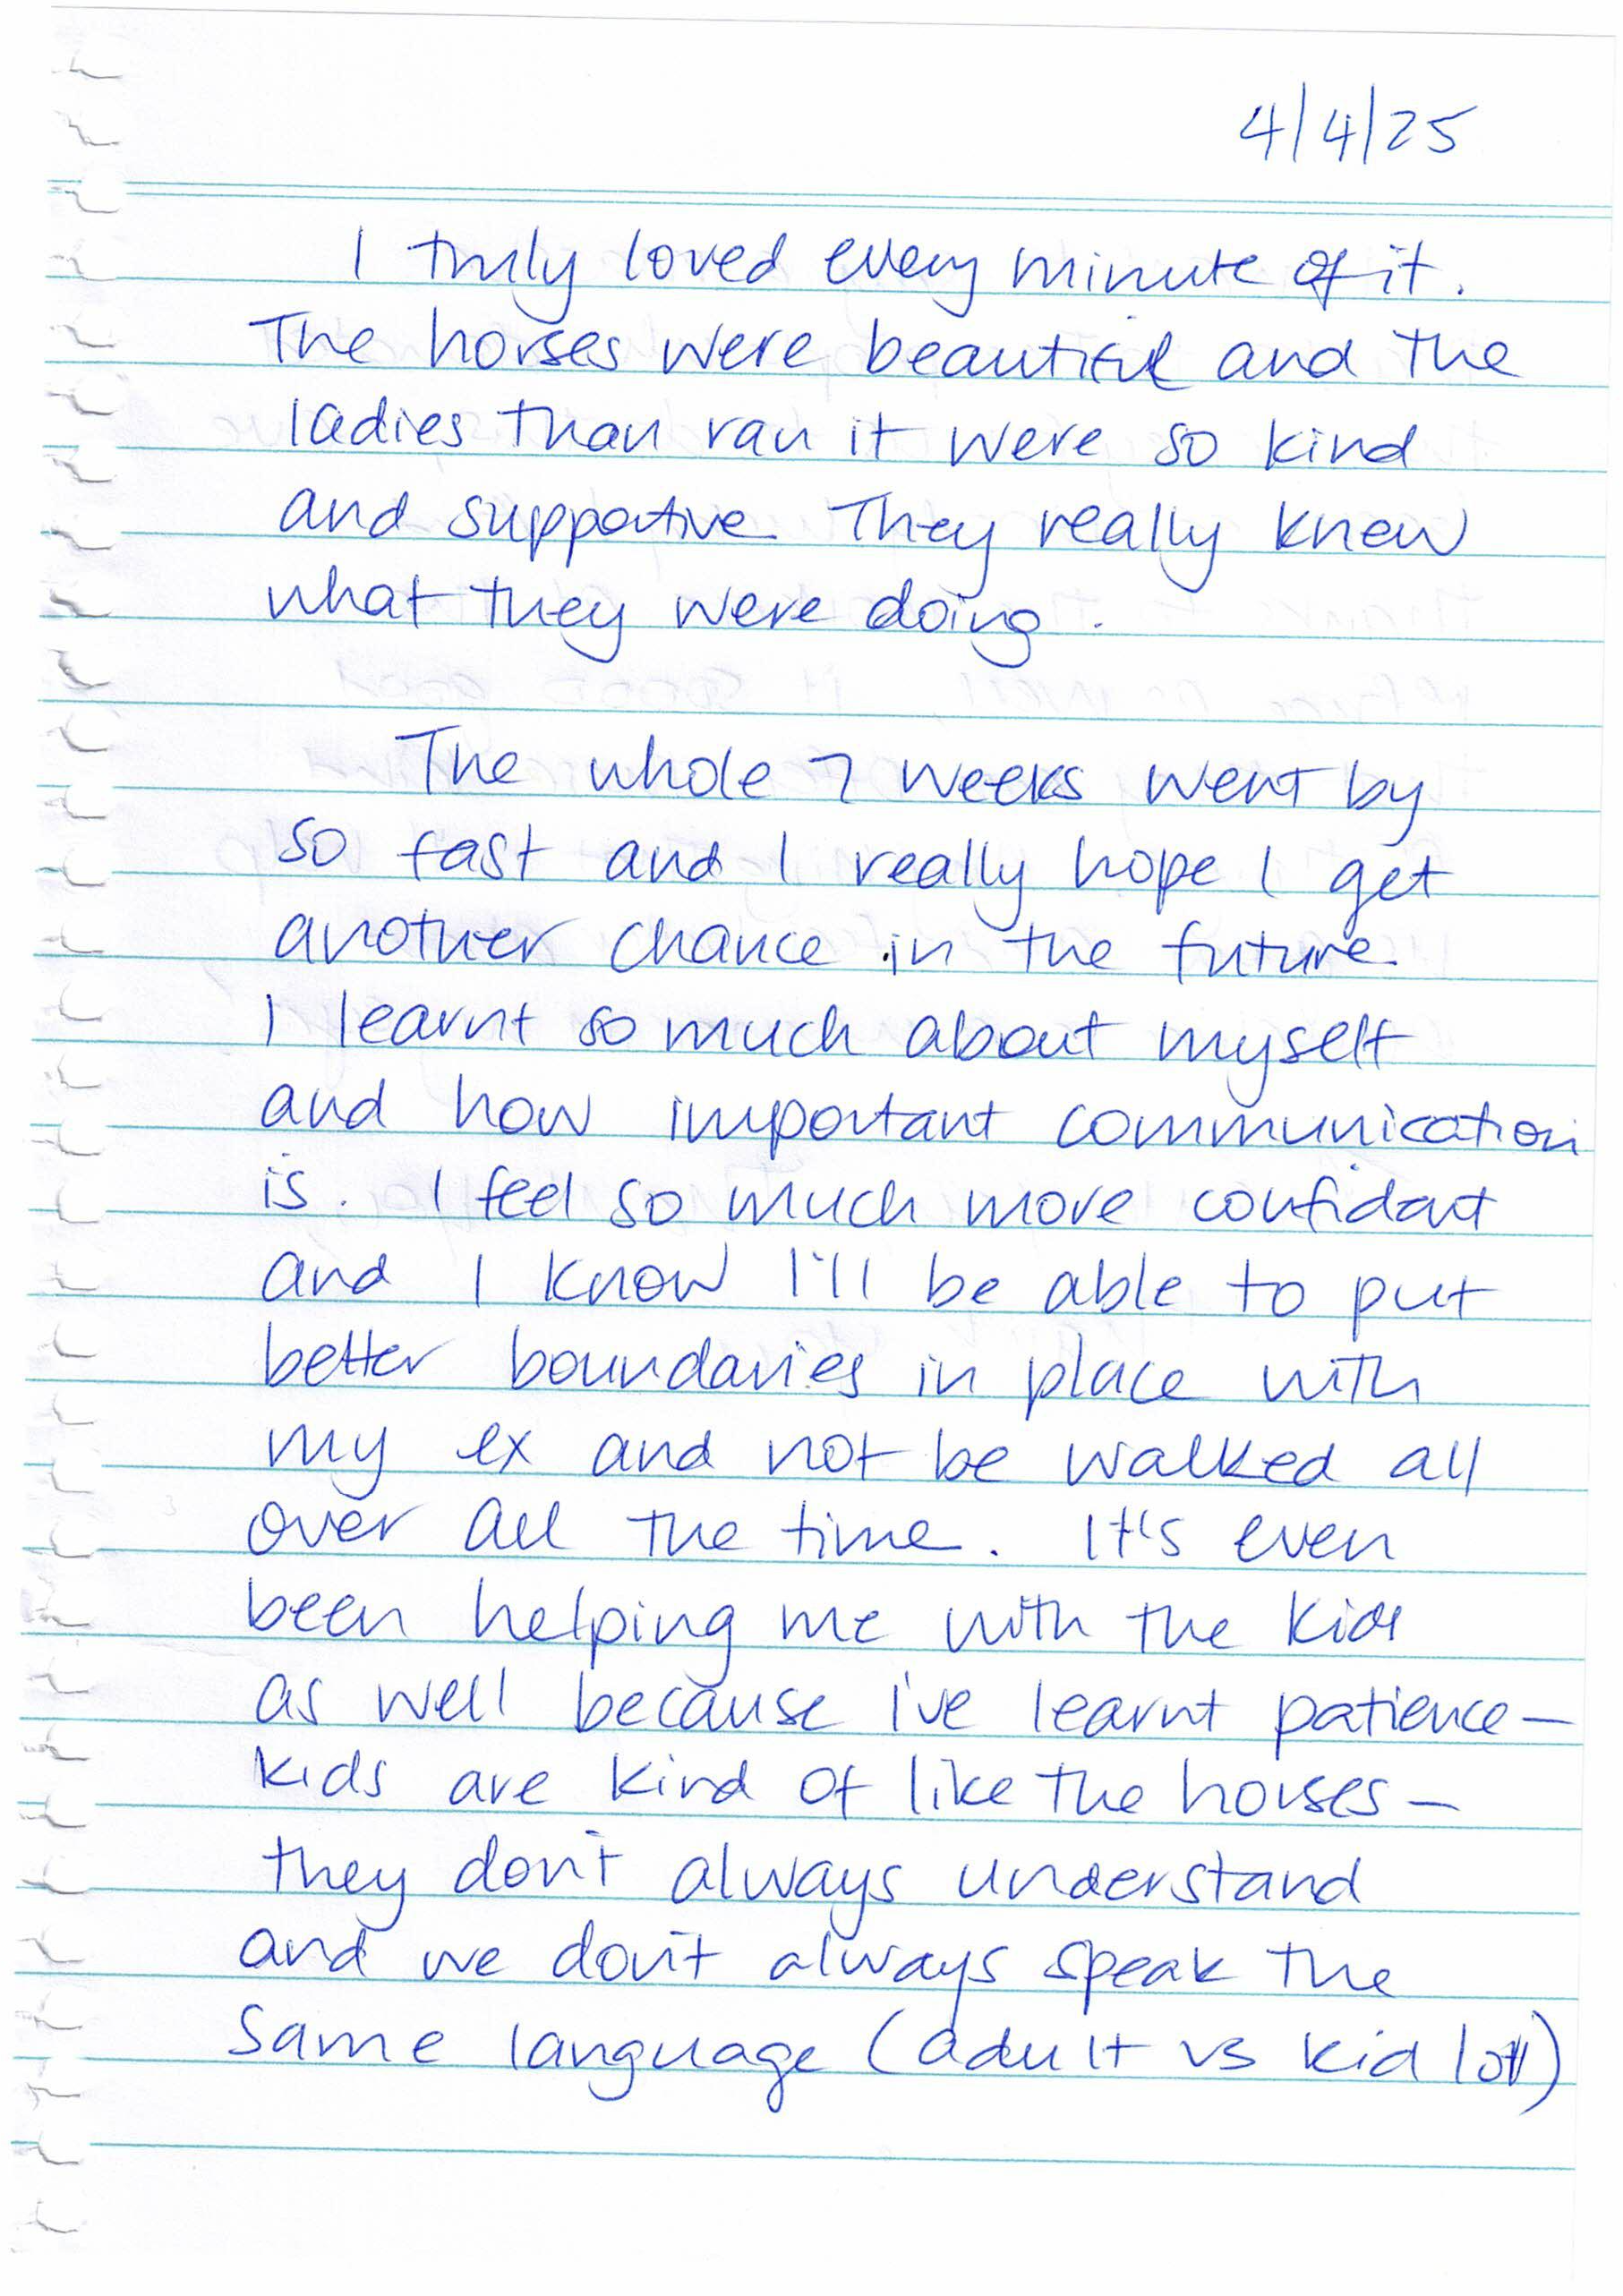 4/4/25
I truly loved every minute of it.
The horses were beautiful and the
ladies than ran it were so kind
and supportive. They really knew
what they were doing.
The whole 7 weeks went by
so fast and I really hope I get
another chance in the future.
I learnt so much about myself
and how important communication
is. I feel so much more confidant
and I know I'll be able to put
better boundaries in place with
my ex and not be walked all
over all the time. It's even
been helping me with the kids
as well because I've learnt patience -
kids are kind of like the horses -
they don't always understand
and we don't always speak the
same language (adult vs kid lol)